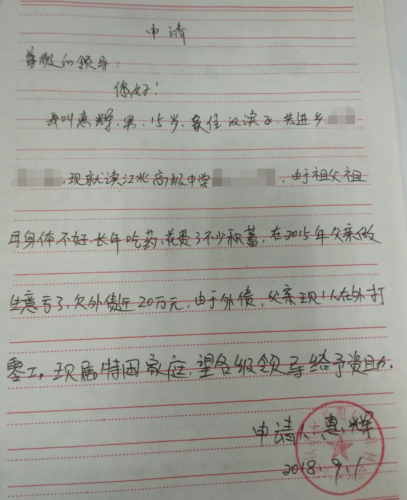 申请
尊敬的领导:
您好!
我叫惠辉,男,15岁,家住汉滨区共进乡
,现就读江北高级中学,由于祖父祖
母身体不好,长年吃药,花费了不少积蓄,在2015年父亲做
生意亏了,欠外债近20万元,由于外债,父亲现1人在外打
零工,现属特困家庭,望各级领导给予资助.
申请人:惠辉
2018.9.1